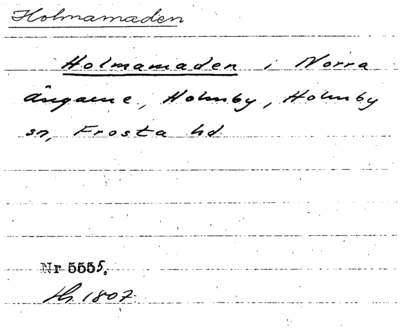 Holmamaden
Holmamaden i Norra
ängarne, Holmby, Holmby
sn, Frosta hd
Nr 5555.
1807